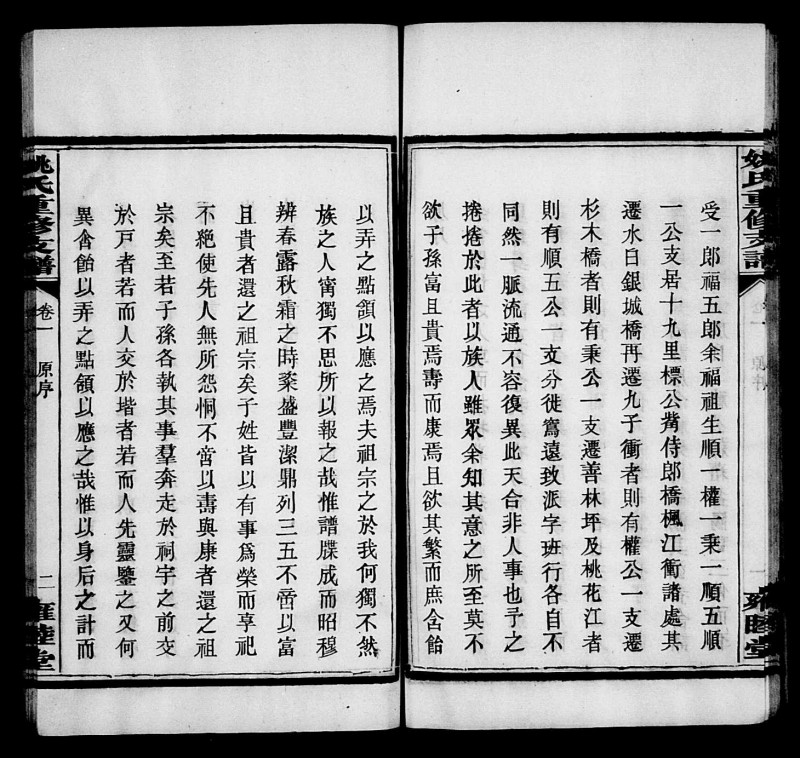 姚氏重修支譜
卷一
雍睦堂
受一郎福五郎余福祖生順一權一乗一順五順
一公支居十九里標公崙侍郎橋楓江衝諸處其
遷水白銀城橋再遷九子衝者則有權公一支遷
杉木橋者則有秉公一支遷善林坪及桃花江者
則有順五公一支分徙寫遠致派字班行各自不
同然一脈流通不容復異此天合非人事也予之
捲捲於此者以族人雖眾余知其意之所至莫不
欲子孫富且貴焉壽而康焉且欲其繁而庶含飴
以弄之點頷以應之焉夫祖宗之於我何獨不然
族之人甯獨不思所以報之哉惟譜牒成而昭穆
辨春露秋霜之時粢盛豐潔鼎列三五不啻以富
且貴者還之祖宗矣子姓皆以有事爲榮而享祀
不絶使先人無所怨恫不啻以壽與康者還之祖
宗矣至若子孫各執其事羣奔走於祠宇之前交
於戸者若而人交於堦者若而人先靈鑒之又何
異含飴以弄之點頷以應之哉惟以身后之計而
姚氏重修支譜
卷一
原序
二
雍睦堂